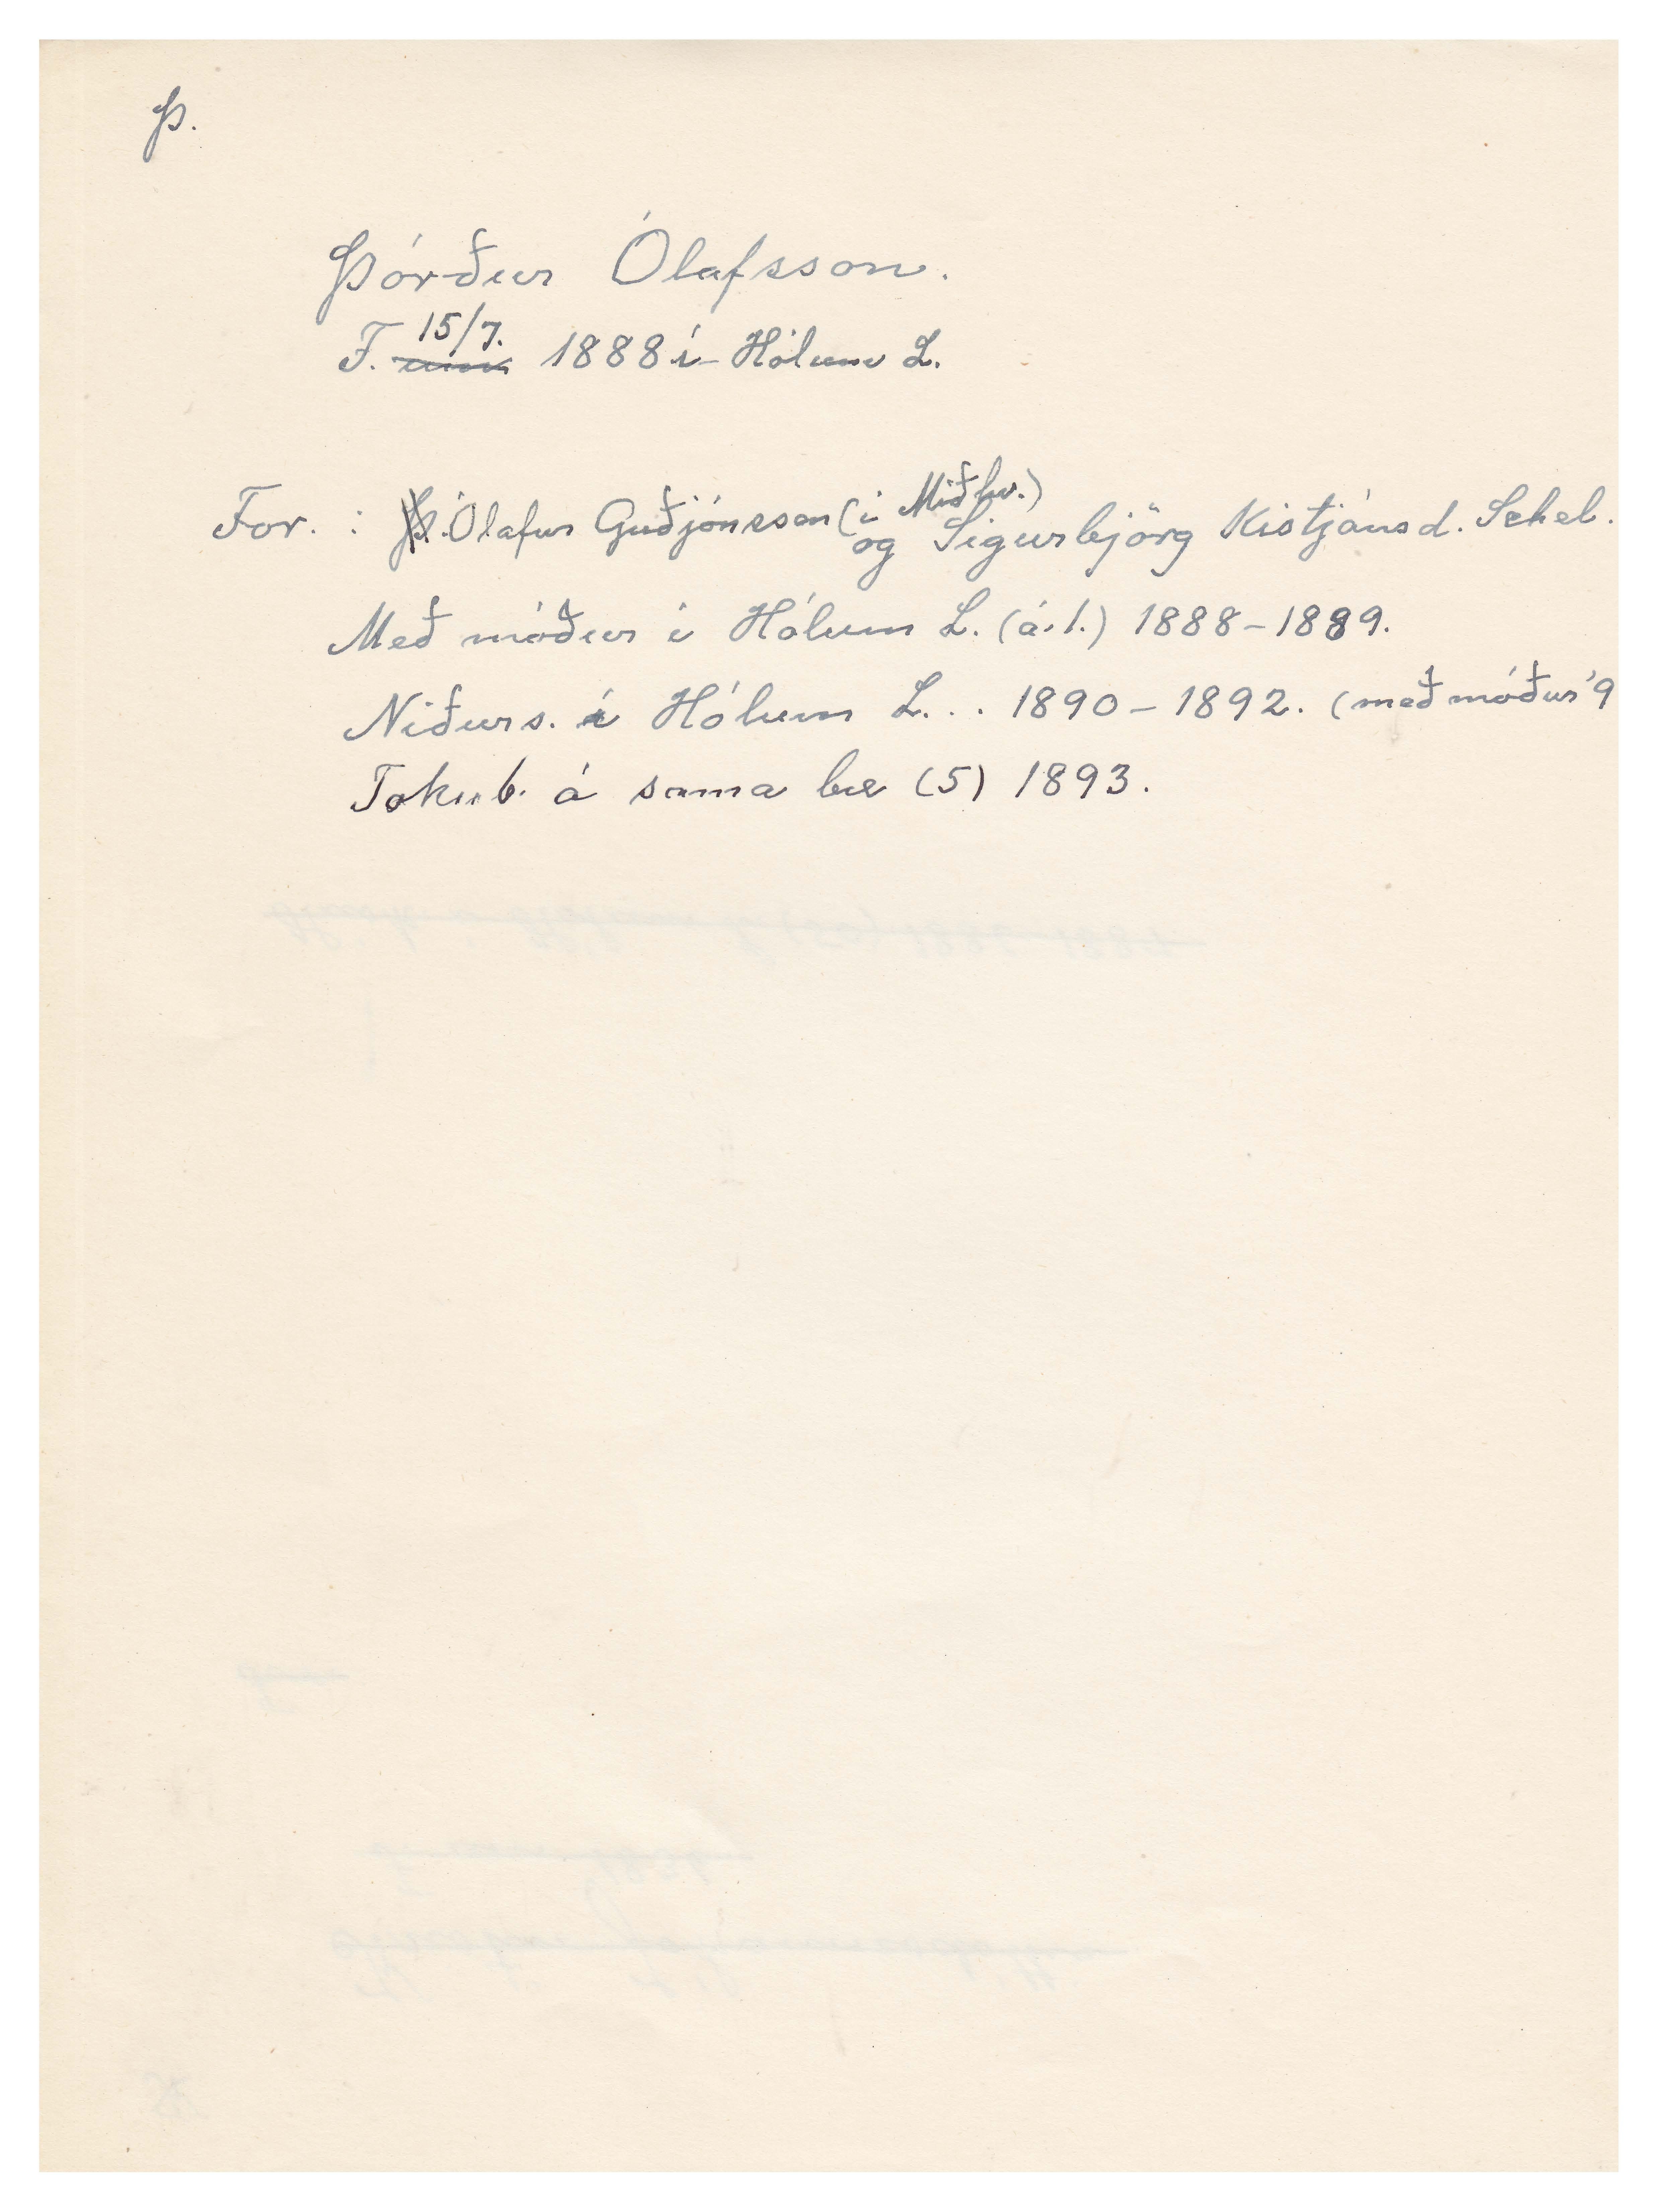 Þ.
Þórður Ólafsson.
F. 15/7. 1888 í Hólum L.
For. : Ólafur Guðjónsson (í Miðhv.) og Sigurbjörg Kistjánsd. Schel.
Með móður í Hólum L. (á.1.) 1888-1889.
Niðurs. í Hólum L... 1890-1892. (með móður '9
Tökub. á sama bæ (5) 1893.